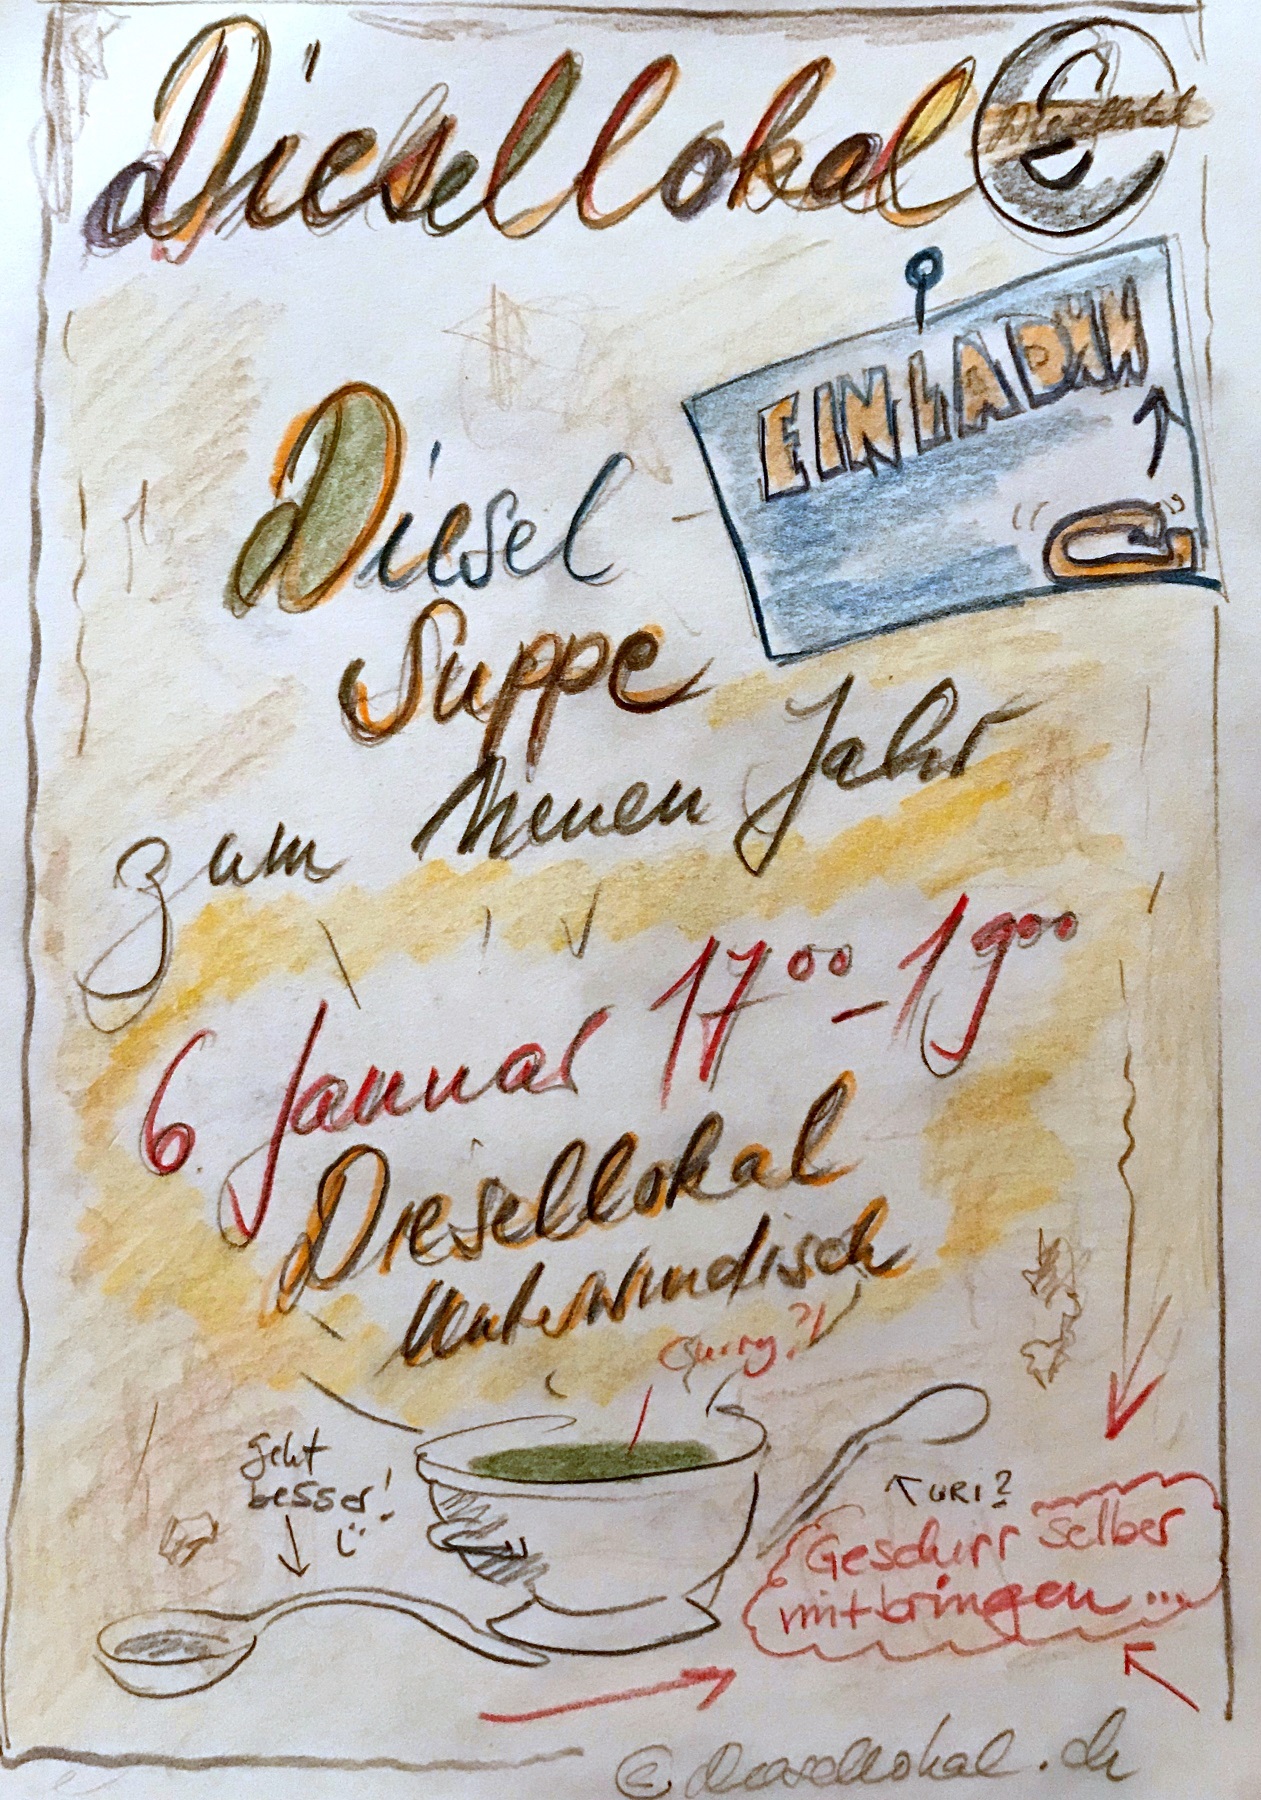 Diesellokal
Diesellokal
EINLADNN
Diesel
Suppe
zum neuen Jahr
6. Januar 17⁰⁰ – 19⁰⁰
Diesellokal
Unterwindisch
Curry?!
geht
besser!
URI?
Geschirr selber
mitbringen...
© diesellokal.ch